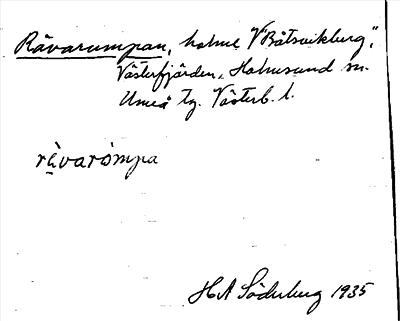 Rävarumpan, holme V Båtsvikberg,
Västerfjärden, Holmsund sn.
Umeå tg. Västerb. l.
rävaròmpa
H A Söderberg 1935